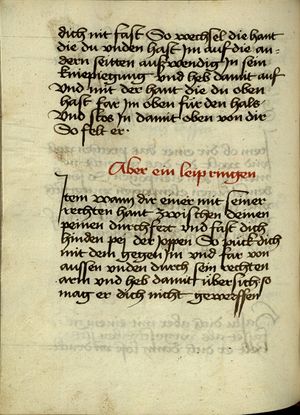 dich nit fast So wechsel die hant
die du vnden hast Jn auf die an-
dern seitten aufwendig Jn sein
kniepiegung vnd heb damit auf
Vnd mit der hant die du oben
hast far Jn oben für den hals
Vnd stos Jn damit oben von dir
So felt er ·
Aber ein leip ringen
Jtem wann dir einer mit seiner
rechten hant zwischen deinen
peinen durchfert vnd fast dich
hinden pej der Joppen So puck dich
mit dem gegen Jn vnd far von
aussen vnden durch sein rechten
arm vnd heb damit übersich so
mag er dich nicht gewerffen